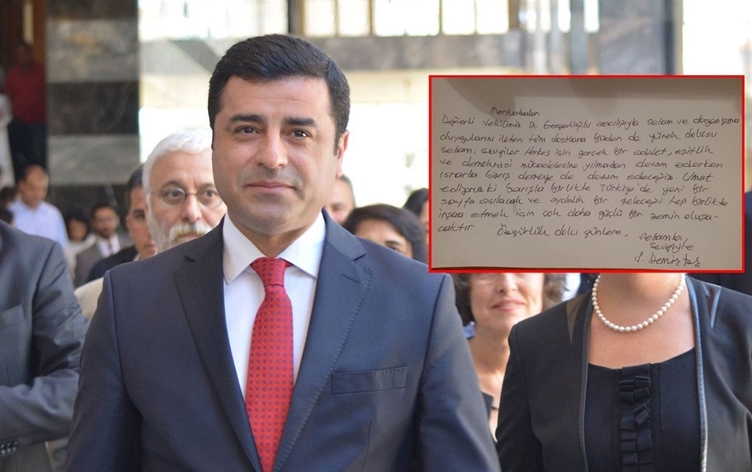 Merhabalar
Değerli vekilimiz Dr Gergerlioğlu aracılığıyla selam ve dayanışma
duygularını ileten tüm dostlara bizden de yürek dolusu
selam, sevgiler. Herkes için gerçek bir adalet, eşitlik
ve demokrasi mücadelesine yılmadan devam ederken
ısrarla barış demeye de devam edeceğiz. Umut
ediyoruz ki barışla birlikte Türkiye'de yeni bir
sayfa açılacak ve aydınlık bir geleceği hep birlikte
inşa etmek için çok daha güçlü bir zemin oluşa-
caktır.
Özgürlük dolu günlere,
Selamla,
Sevgiyle
S. Demirtaş